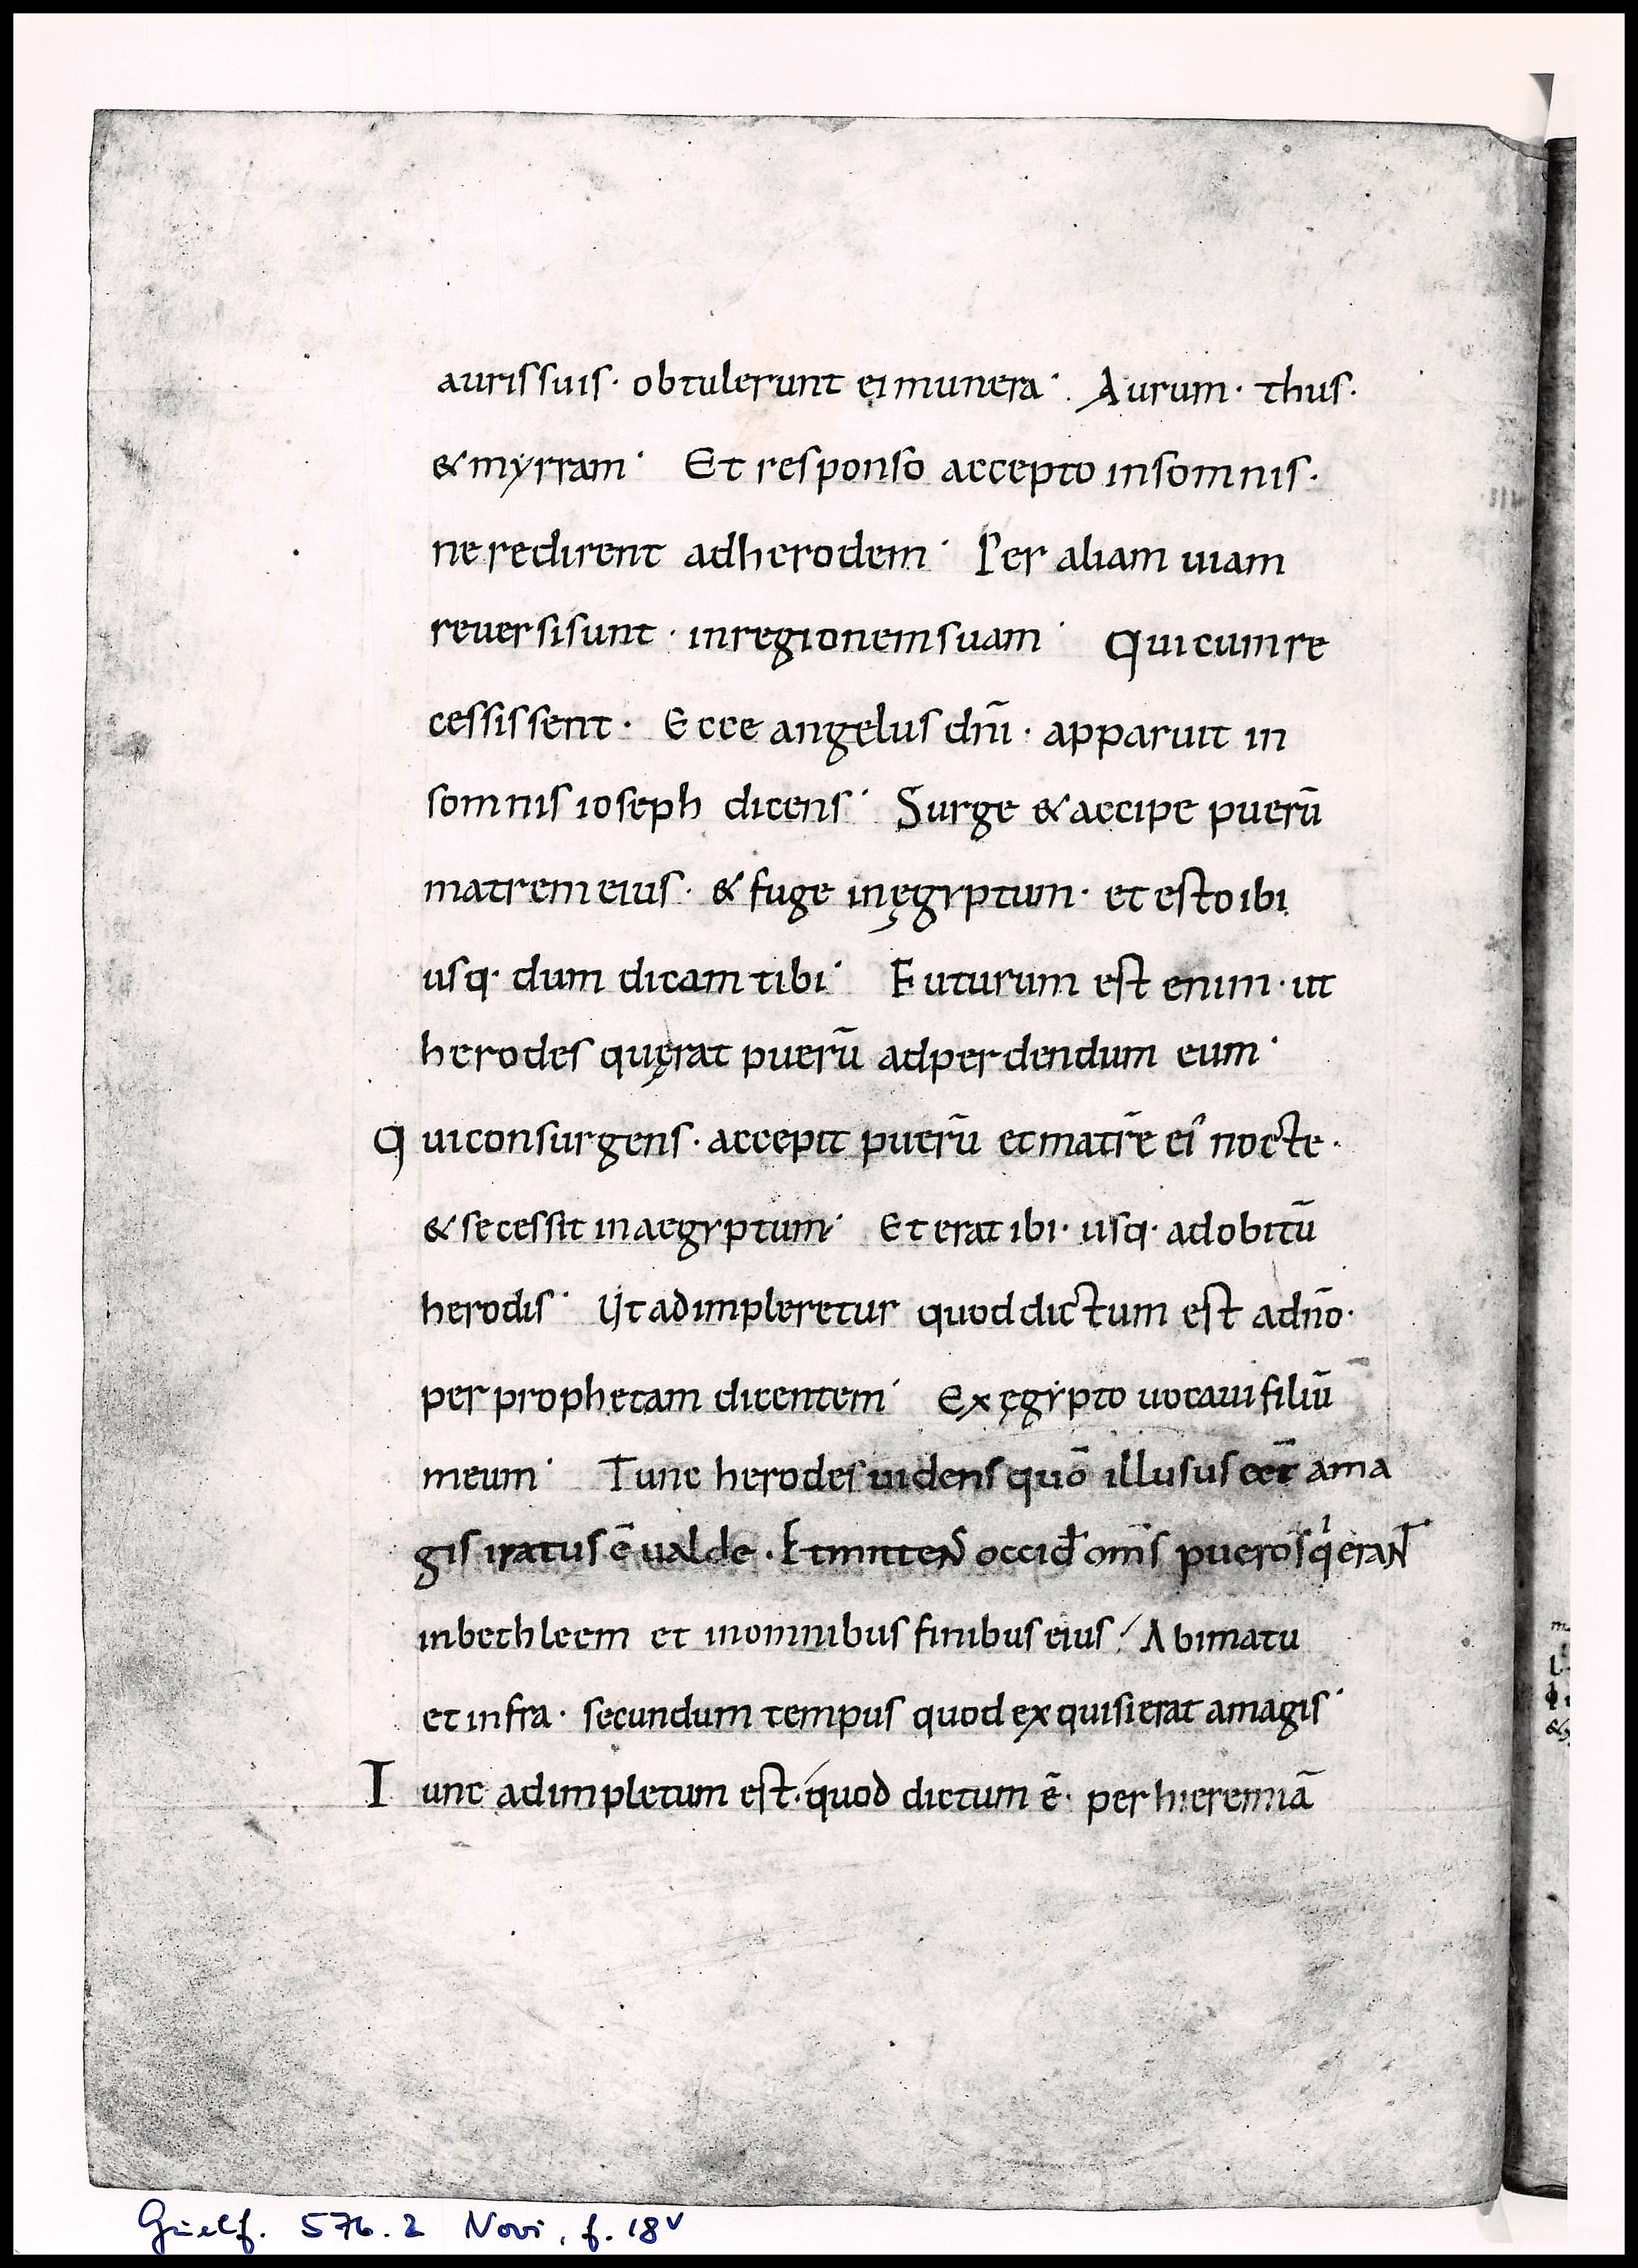 auris suis· obtulerunt ei munera· Aurum· thus·
& myrram· Et responso accepto in somnis·
ne redirent ad herodem· Per aliam uiam
reuersi sunt· in regionem suam· Qui cum re
cessissent· Ecce angelus dnī· apparuit in
somnis ioseph dicens· Surge & accipe puerū
matrem eius· & fuge in ęgyptum· et esto ibi
usq· dum dicam tibi· Futurum est enim· ut
herodes quęrat puerū ad perdendum eum·
Qui consurgens· accepit puerū et matrē ei᾽ nocte·
& secessit in aegyptum· Et erat ibi· usq· ad obitū
herodis· Ut adimpleretur quod dictum est a dnō·
per prophetam dicentem· Ex ęgypto uocaui filiū
meum· Tunc herodes uidens quō illusus eēt a ma
gis iratus ē ualde· Et mittens occid̄ om̄s pueros qi erant
in bethleem et in omnibus finibus eius· A bimatu
et infra· secundum tempus quod exquisierat a magis·
Tunc adimpletum est· quod dictum ē· per hieremiā
Guelf. 576.2 Novi, f. 18v